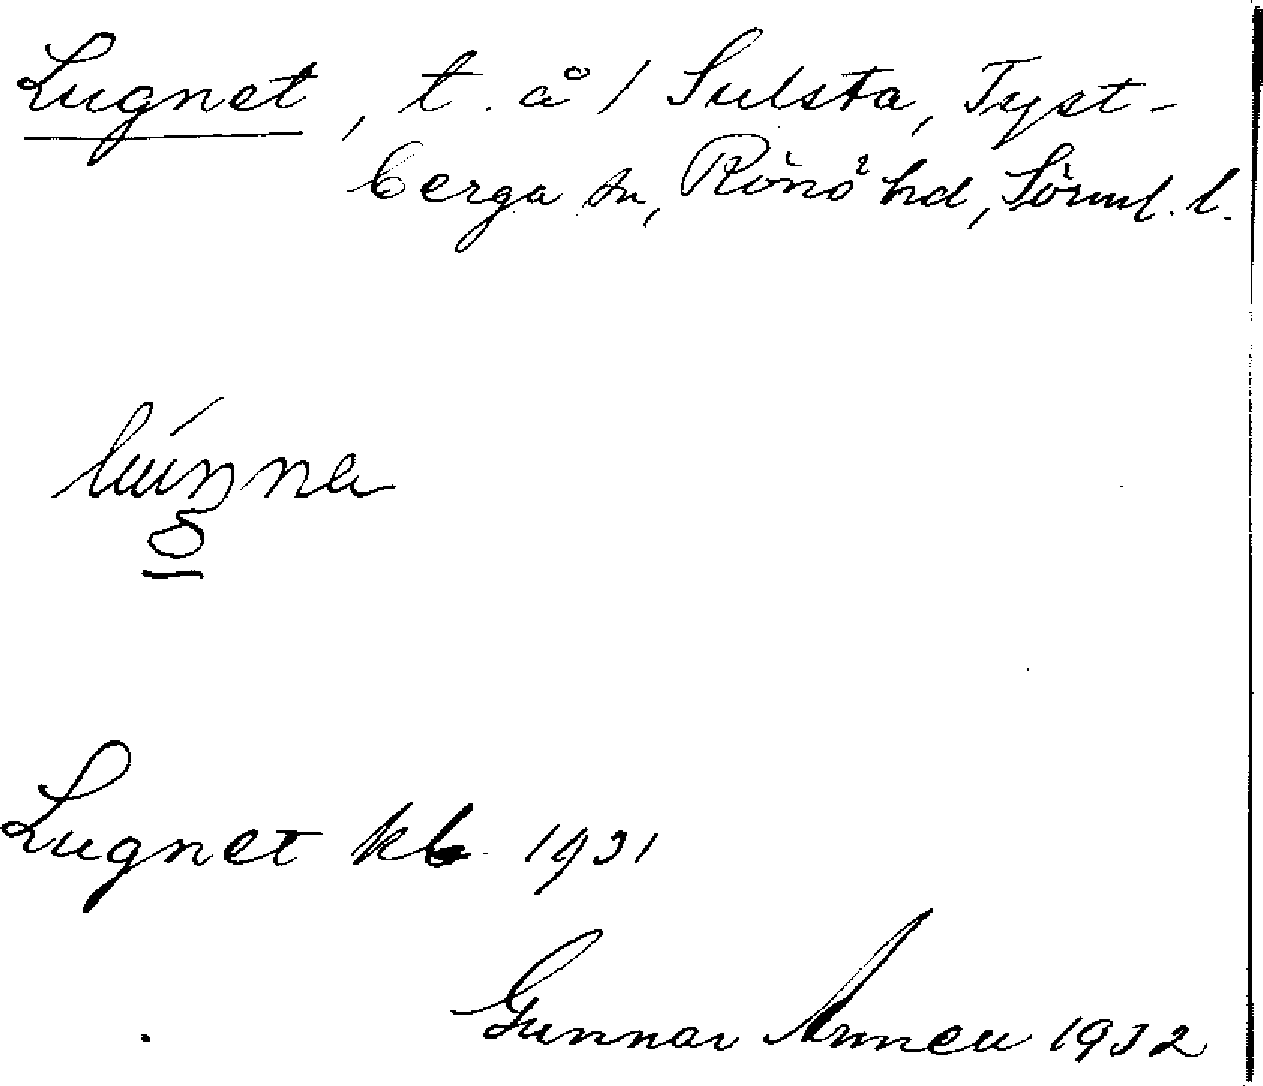 Lugnet, t. å / Sulsta, Tyst-
berga sn, Rönö hd, Sörml. l.
Lugnet kb 1931
Gunnar 1932